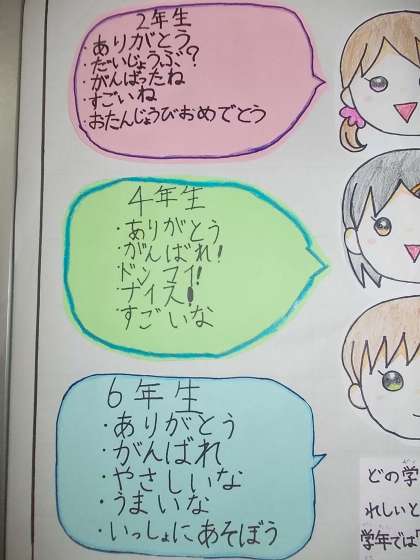 2年生
・ありがとう
・だいじょうぶ?
・がんばったね
・すごいね
・おたんじょうびおめでとう
4年生
・ありがとう
・がんばれ!
・ドンマイ!
・ナイス!
・すごいな
6年生
・ありがとう
・がんばれ
・やさしいな
・うまいな
・いっしょにあそぼう
どの学
れしいと
学年では「